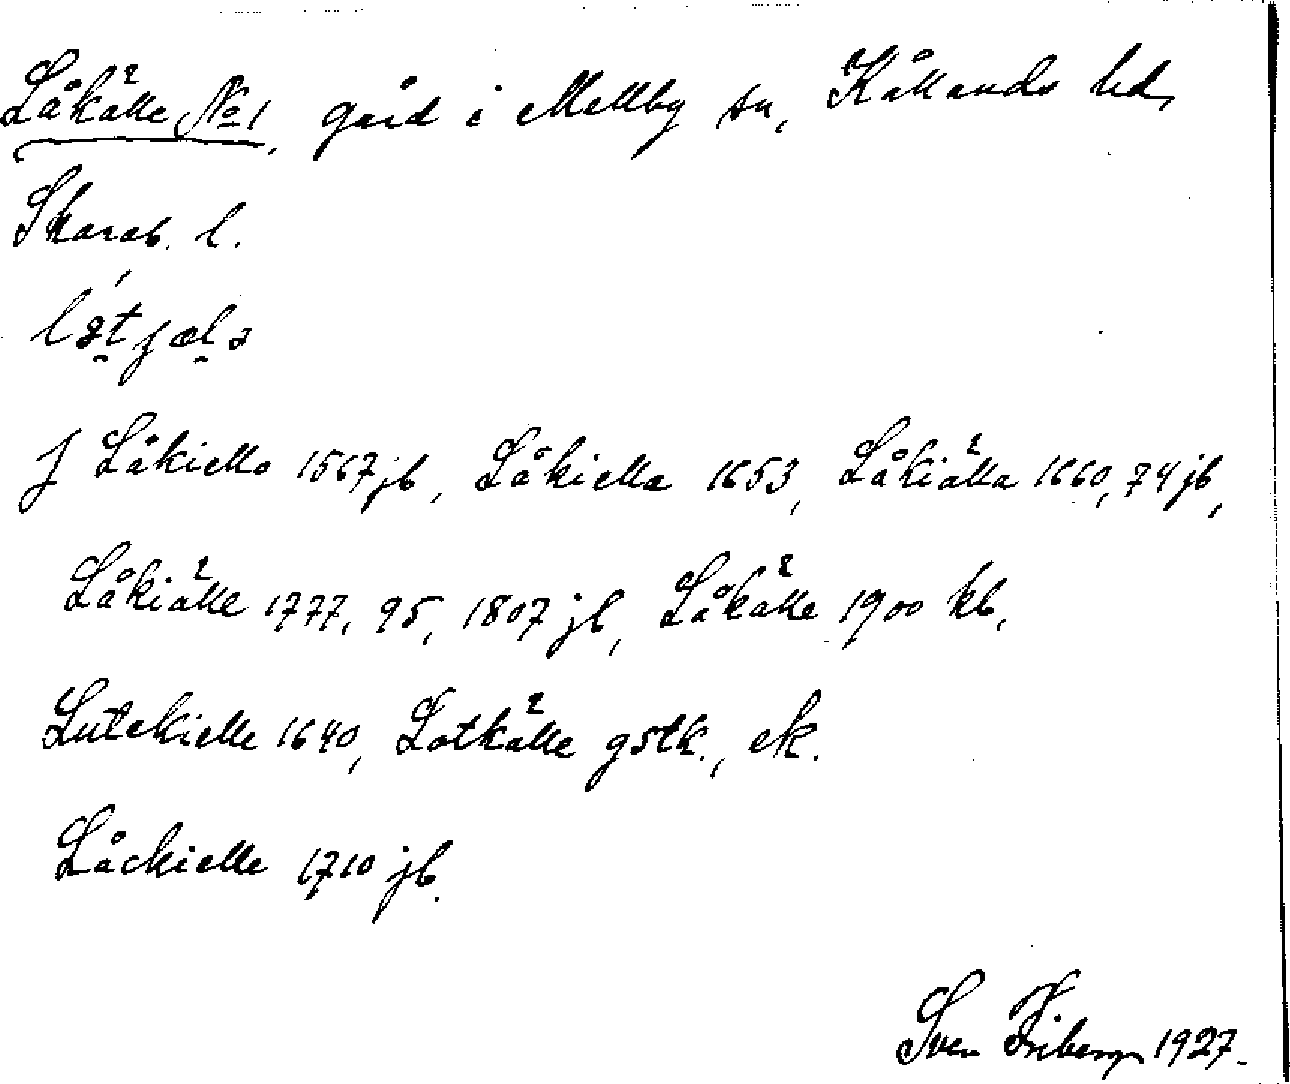 Låkälle No 1, gård i Mellby sn, Kållands hd,
Skarab. l.
J Låkiello 1567 jb, Låkiella 1653, Låkiälla 1660, 74 jb,
Låkiälle 1777, 95, 1807 jb, Låkälle 1900 kb,
Lutekielle 1640, Lotkälle gstk., ek.
Låckielle 1710 jb.
Sven Friberg 1927.